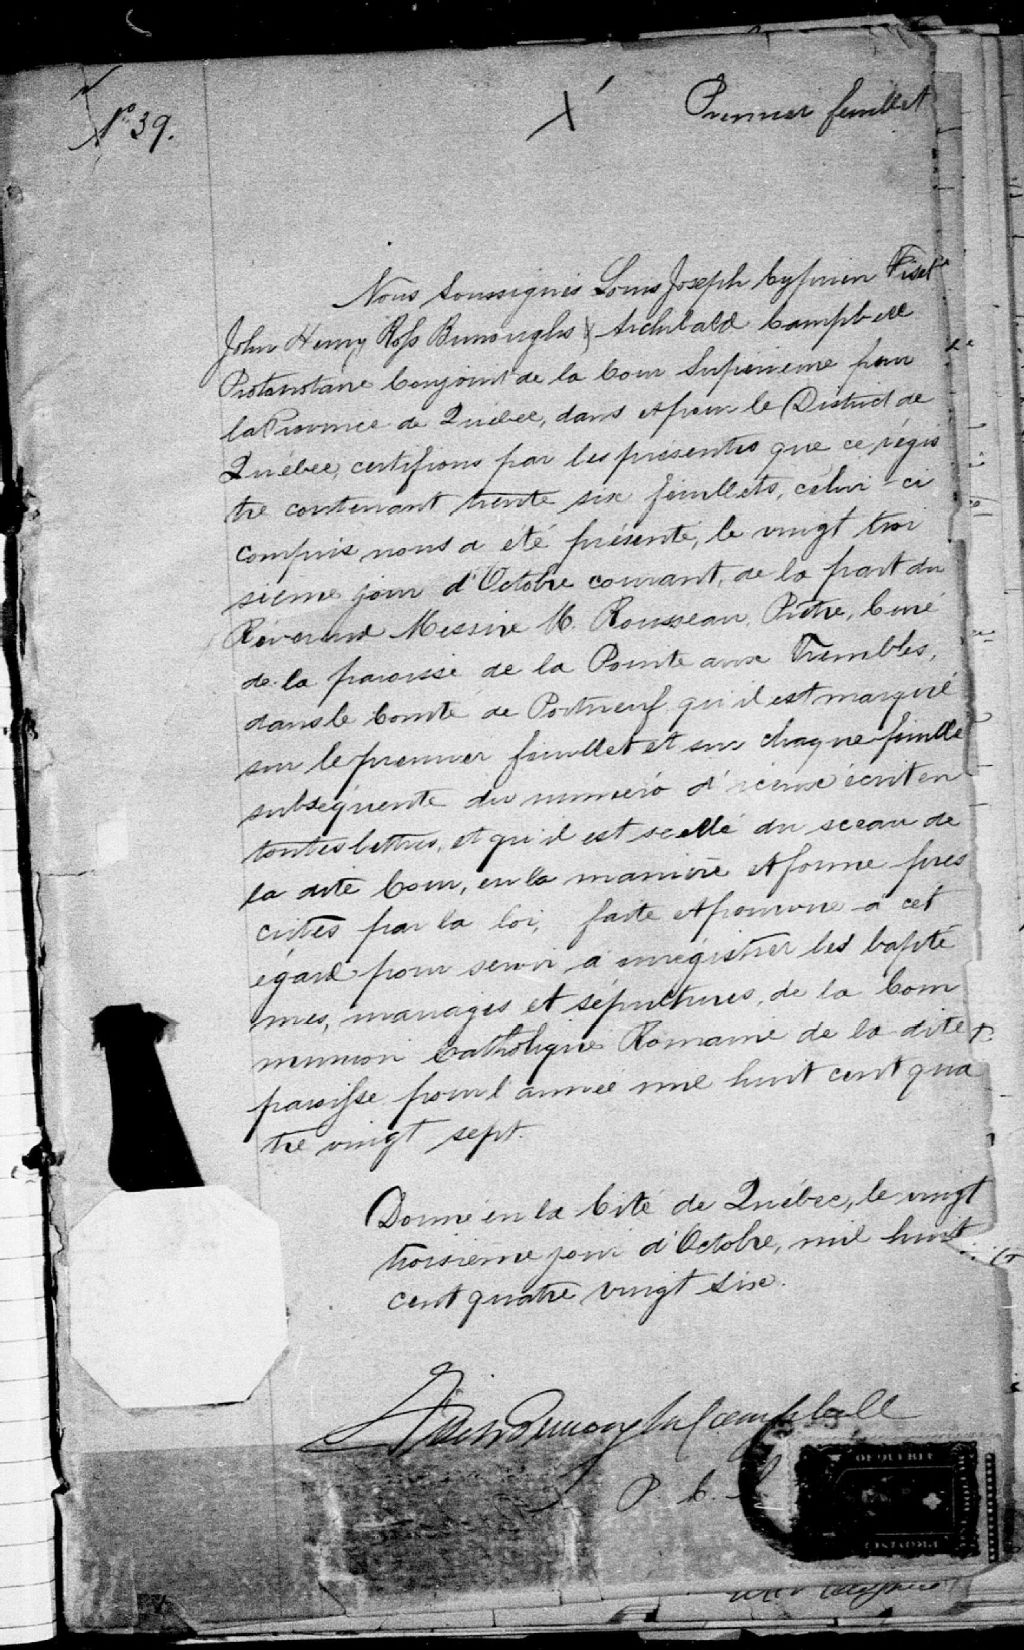 No 39.
Premier feuillet
Nous soussignés Louis Joseph Cyprien Fiset
John Henry Ross Burroughs & Archibald Campbell
Protonotaire Conjoint de la Cour Supérieure pour
la Province de Québec, dans et pour le District de
Québec, certifions par les présentes que ce régis
tre contenant trente six feuillets, celui-ci
compris nous a été présenté, le vingt troi
sième jour d'Octobre courant, de la part du
Révérend Messire M. Rousseau, Prêtre, Curé
de la paroisse de la Pointe aux Trembles,
dans le Comté de Portneuf, qu'il est marqué
sur le premier feuillet et sur chaque feuille
subséquente du numéro d'iceux écrit en
toutes lettres, et qu'il est scellé du sceau de
la dite Cour, en la manière et forme pres
crites par la loi, faite et pourvue à cet
égard pour servir à enrégistrer les baptê
mes, mariages et sépultures, de la Com
munion Catholique Romaine de la dite
paroisse pour l'année mil huit cent qua
tre vingt sept.
Donné en la Cité de Québec, le vingt
troisième jour d'Octobre, mil huit
cent quatre vingt six.
Fiset Burroughs Campbell
P. C. S.